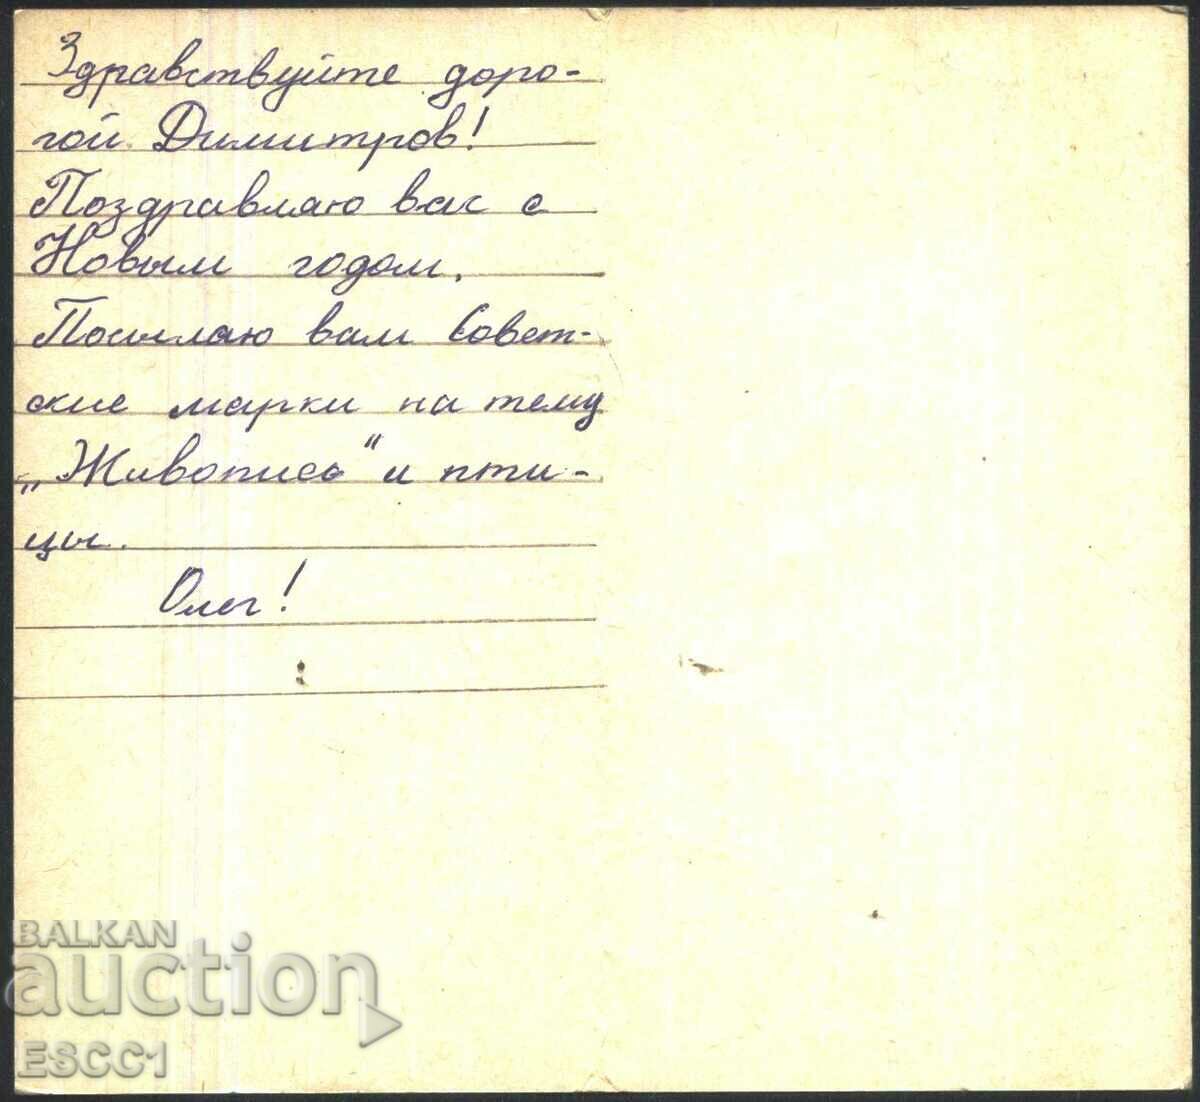 Здравствуйте доро-
гой Димитров!
Поздравляю вас с
Новым годом.
Посылаю вам Совет-
ские марки на тему
„Живопись" и пти-
цы.
Олег!
BALKAN
auction
ESCC1